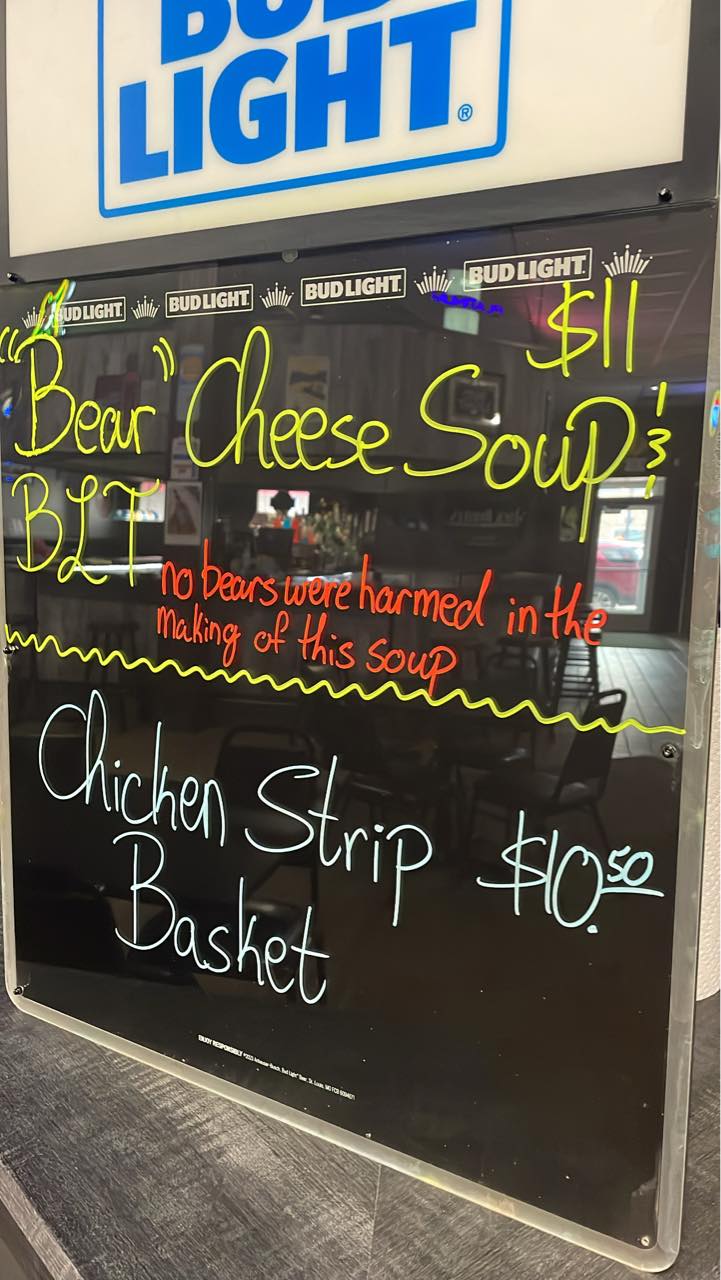 BUD
LIGHT®
BUD LIGHT BUD LIGHT BUD LIGHT BUD LIGHT
$11
"Bear" Cheese Soup &
BLT
no bears were harmed in the
making of this soup
Chicken Strip $10.50
Basket
ENJOY RESPONSIBLY